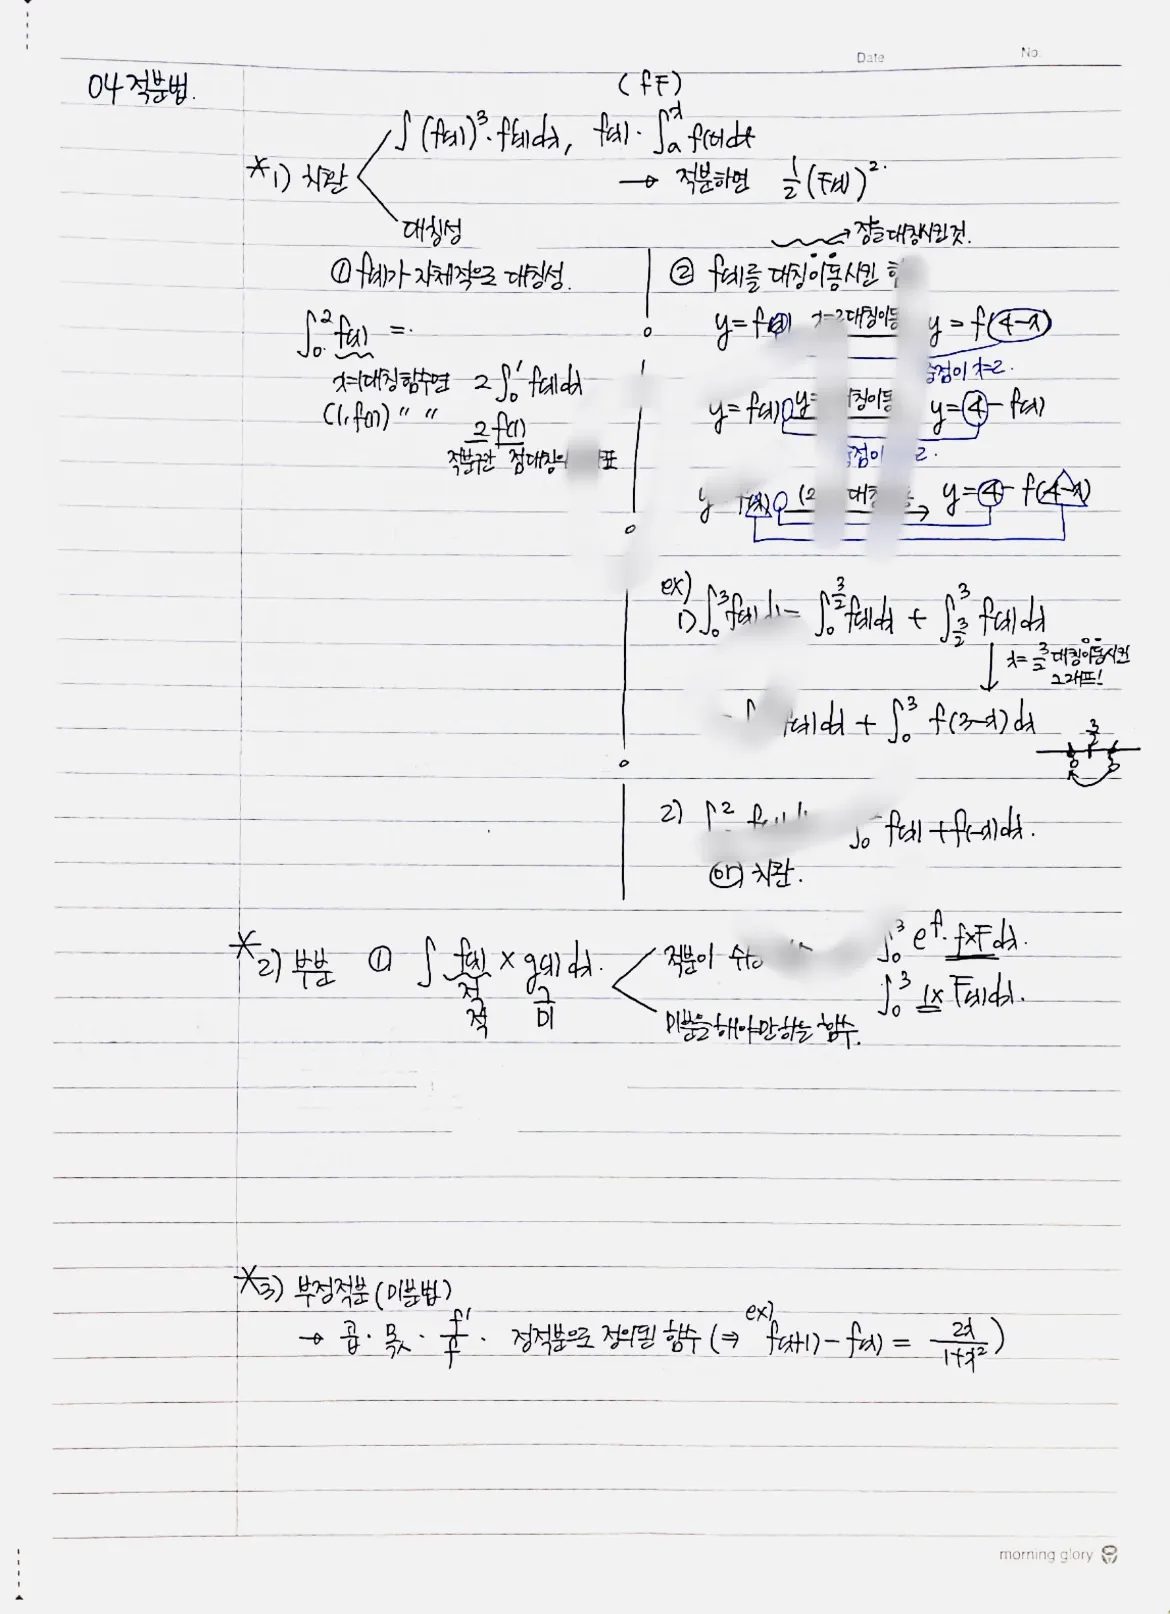 Date No.
04 적분법.
(fF)
*1) 치환
∫(f(x))³·f'(x)dx, f(x)·∫ₐˣ f(t)dt
→ 적분하면 ½(F(x))².
대칭성
① f(x)가 자체적으로 대칭성.
∫₀² f(x) =
x=1대칭함수면 2∫₀¹ f(x)dx
(1, f(1)) 〃 〃 2f(1)
적분구간
→ 장을 대칭시킨것.
② f(x)를 대칭이동시킨
y=f(x) x=2대칭이동 y = f(4-x)
x=2.
y=f(x) y= 대칭이동 y=4-f(x)
2.
y f(x) (2 대칭 y=4-f(4-x)
ex)
1) ∫₀³ f(x)dx = ∫₀^(3/2) f(x)dx + ∫_(3/2)³ f(x)dx
↓ x=3/2 대칭이동시킨
그래프!
f(x)dx + ∫₀³ f(3-x)dx
3/2
0 3
2) ∫ ² f(x) ∫₀ f(x)+f(-x)dx.
or) 치환.
*2) 부분 ① ∫ f(x) × g(x)dx.
적 그
적 미
적분이 쉬운
∫₀³ eᶠ·f×F dx.
∫₀³ 1× F(x)dx.
미분을해야만하는 함수.
*3) 부정적분(미분법)
→ 곱·몫·f'/f· 정적분으로 정의된 함수(⇒ ex) f(x+1)-f(x) = 2x/(1+x²))
morning glory